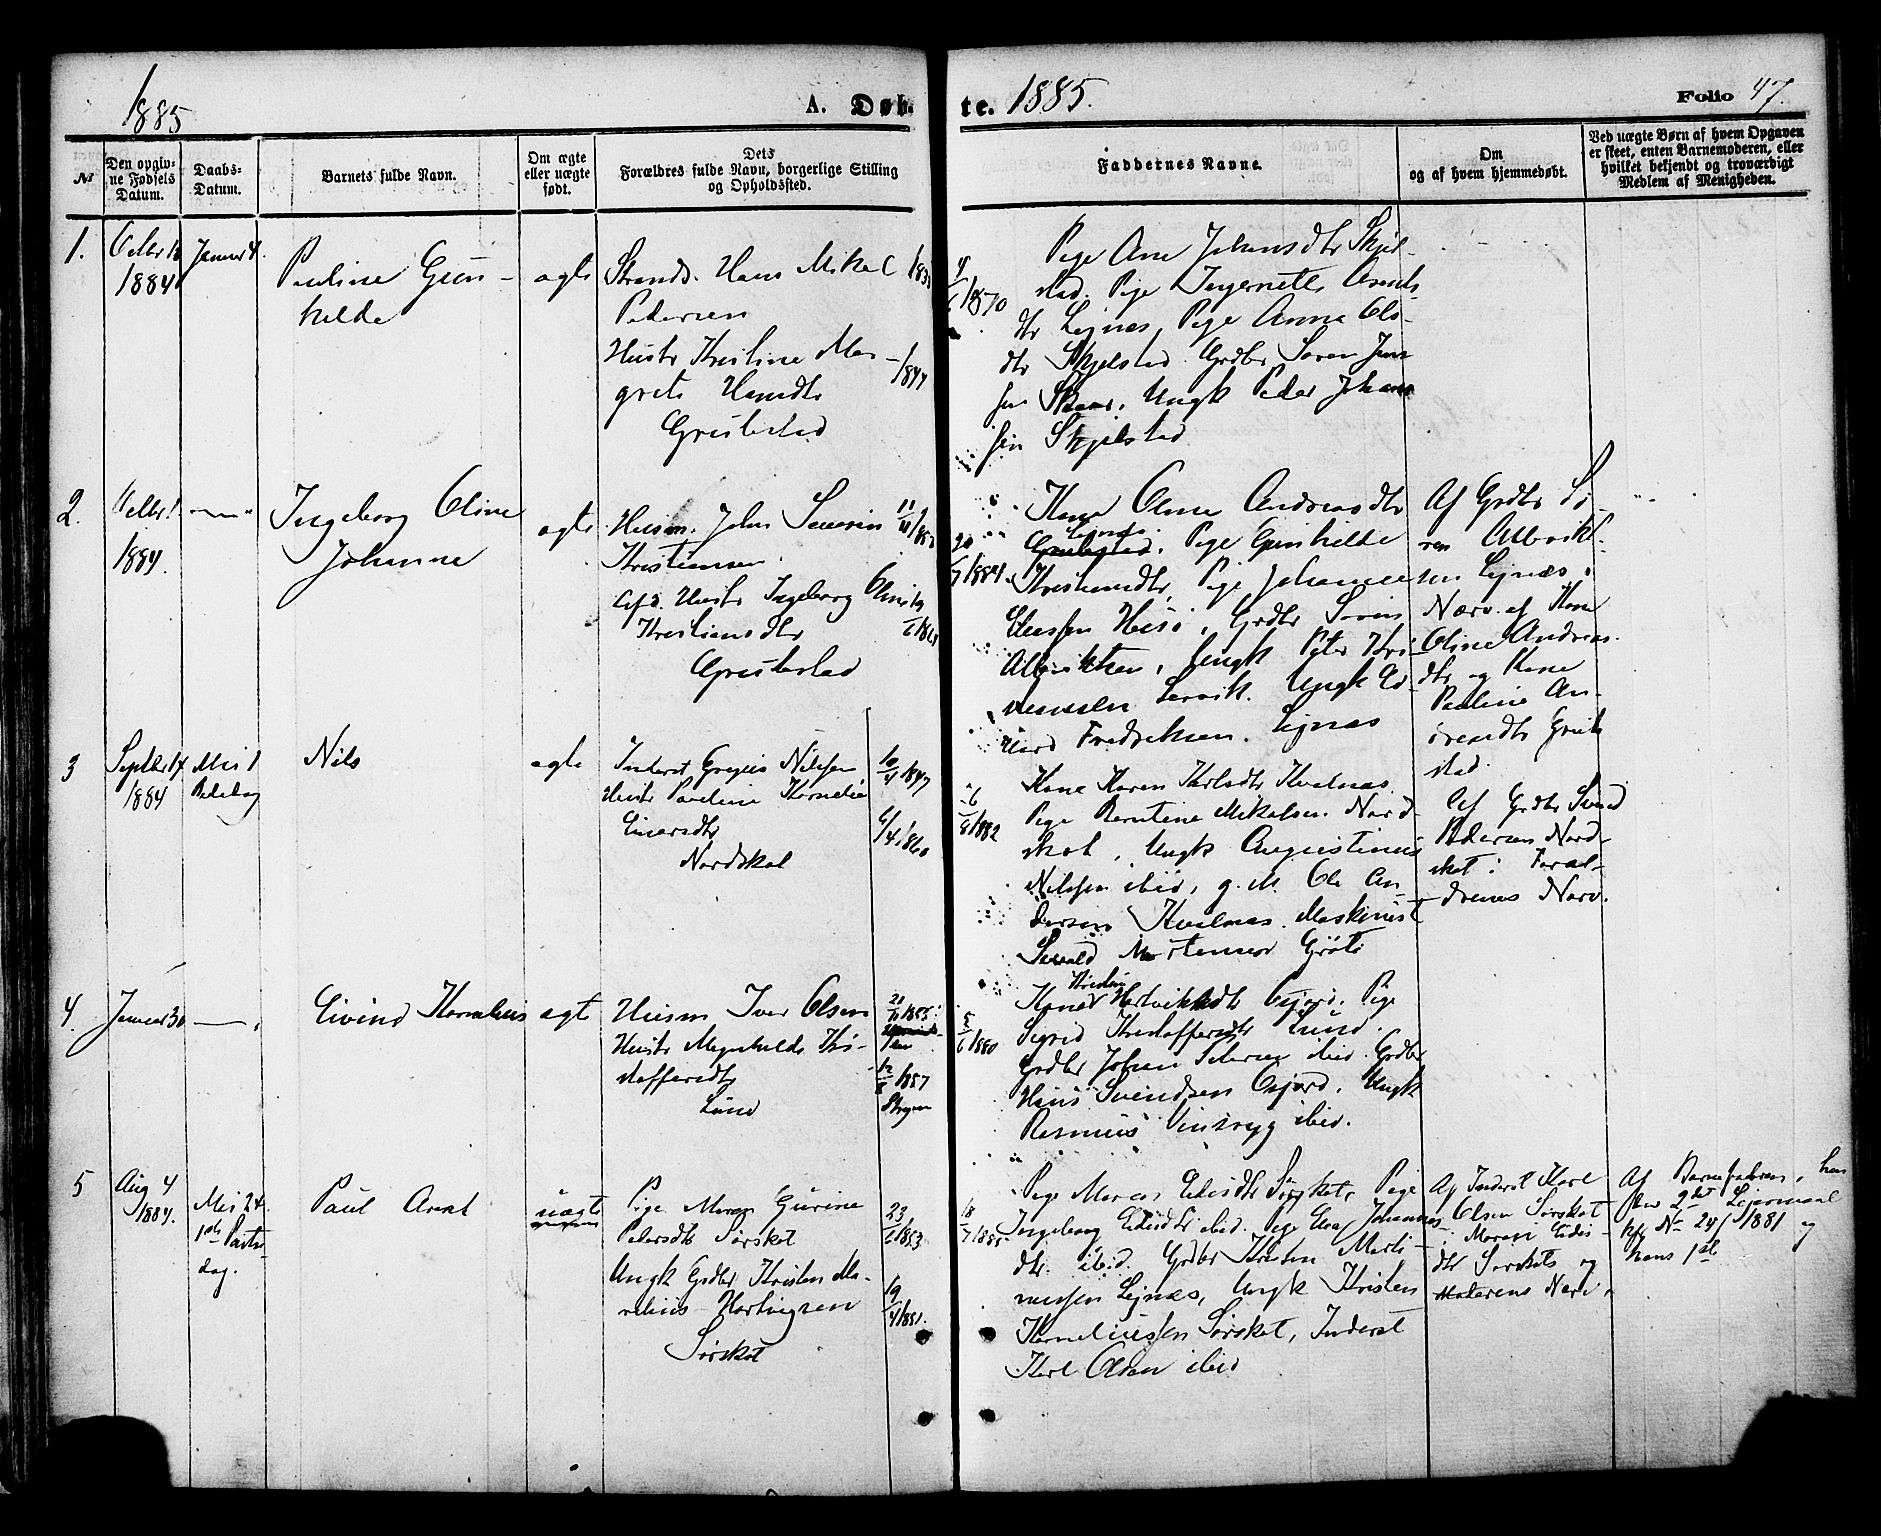 1885
A. Døb-
te. 1885.
Folio 47.
№
Den opgiv-
ne Fødsels
Datum.
Daabs-
Datum.
Barnets fulde Navn.
Om ægte
eller uægte
født.
Dets
Forældres fulde Navn, borgerlige Stilling
og Opholdssted.
Faddernes Navne.
Om
og af hvem hjemmedøbt.
Ved uægte Børn af hvem Opgaven
er skeet, enten Barnemoderen, eller
hvilket bekjendt og troværdigt
Medlem af Menigheden.
1.
1884
Januar 4
Pauline Gun-
hilde
ægte
Strands. Hans Mikal
Pedersen
Hustr Kristine Mar-
grete Hansdtr
Grubstad
/1844
/1870
Pige Ane Johansdtr Skjel-
stad. Pige Ingernette Arents-
dtr Lejnæs, Pige Anna Ols-
dtr Skjelstad. Grdbr Søren Jen-
sen Skaar, Ungk Peder Johan-
sen Skjelstad
2.
1884.
Ingeborg Oline
Johanne
ægte
Husm. John Severin
Kristiansen.
Hustr Ingeborg Oline
Kristiansdtr
Grubstad
/1884
Kone Oline Andreasdtr
Lejnæs. Pige Gunhilde
Pige Johanne
Grdbr Søren
Albriktsen, Ungk Peter Kri-
Lervik. Ungk Ed-
vard Fredriksen. Lejnæs
Af Grdbr Sø-
ren Albrikt-
sen Lejnæs.
Nærv. af Kone
Oline Andreas-
dtr og Kone
Pauline An-
stad.
3
Septbr 17
1884
Mai 1
Bededag
Nils
ægte
Inderst Nilssen
Hustr Pauline Kornelia
Einarsdtr
Nordskot
10/4 1847
6/4 1860
/1882
Kone Karen Karlsdtr Kvalnæs.
Pige Berntine Mikalsen Nord-
skot, Ungk Augustinus
Nilssen ibid, g. M. Ole An-
dersen Kvalnæs. Maskinist
Mortensen Grøtø
Af Grdbr Svend
Pedersen Nord-
skot i Foræl-
drenes Nærv.
4.
Januar 30
Eivind Kornelius
ægt
Husm Iver Olsen
Hustr Magnhilde Kri-
stoffersdtr
Lund
/1855
/1857
/1880
Kone Hartviksdtr Gjerd. Pige
Sigrid Kristoffersdtr Lund.
Grdbr Johan Pedersen ibid. Grdbr
Hans Svendsen Gjerd. Ungk
Rasmus Vinsryg ibid.
5
Aug 4
1884.
Mai 24
1ste Pintse-
dag.
Paul Arnt
uægte
Pige Maren Gurine
Pedersdtr Sørskot
Ungk Grdbr Kristen Ma-
relius Hartvigsen
Sørskot
/1853
19/4 1851.
Pige Maren Eidisdtr Sørskot, Pige
Ingeborg Eidisdtr ibid. Pige Elen Johannes-
dtr ibid. Grdbr Kristen Marti-
nussen Lejnæs, Ungk Kristen
Korneliussen Sørskot, Inderst
Karl Olsen ibid
Af Inderst Karl
Olsen Sørskot
i Maren Eidis-
dtr Sørskots og
Moderens Nærv.
Af Barnefaderen, hen
des 2det Leiermaal
kfr № 24/1881 og
hans 1ste